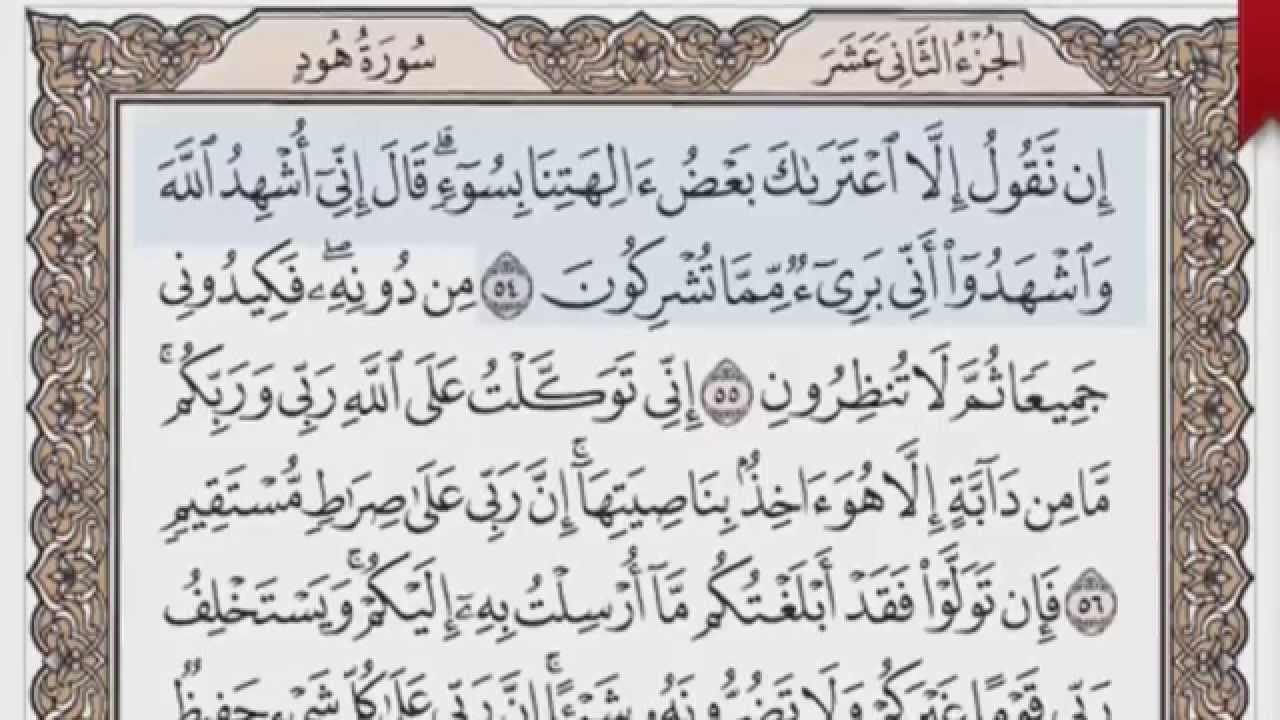 الجُزْءُ الثَّانِي عَشَرَ سُورَةُ هُودٍ
إِن نَّقُولُ إِلَّا ٱعْتَرَىٰكَ بَعْضُ ءَالِهَتِنَا بِسُوٓءٍ ۗ قَالَ إِنِّىٓ أُشْهِدُ ٱللَّهَ
وَٱشْهَدُوٓا۟ أَنِّى بَرِىٓءٌ مِّمَّا تُشْرِكُونَ ٥٤ مِن دُونِهِۦ ۖ فَكِيدُونِى
جَمِيعًا ثُمَّ لَا تُنظِرُونِ ٥٥ إِنِّى تَوَكَّلْتُ عَلَى ٱللَّهِ رَبِّى وَرَبِّكُم ۚ
مَّا مِن دَآبَّةٍ إِلَّا هُوَ ءَاخِذٌۢ بِنَاصِيَتِهَآ ۚ إِنَّ رَبِّى عَلَىٰ صِرَٰطٍ مُّسْتَقِيمٍ
٥٦ فَإِن تَوَلَّوْا۟ فَقَدْ أَبْلَغْتُكُم مَّآ أُرْسِلْتُ بِهِۦٓ إِلَيْكُمْ ۚ وَيَسْتَخْلِفُ
رَبِّى قَوْمًا غَيْرَكُمْ وَلَا تَضُرُّونَهُۥ شَيْـًٔا ۚ إِنَّ رَبِّى عَلَىٰ كُلِّ شَىْءٍ حَفِيظٌ